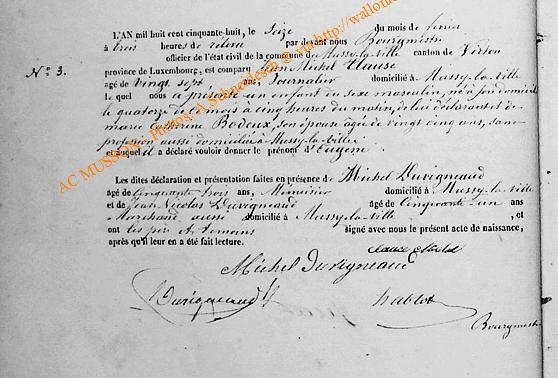 L'AN mil huit cent cinquante-huit, le Seize du mois de février
à trois heures de relevée par devant nous Bourgmestre
officier de l'état civil de la commune de Mussy-la-ville canton de Virton
N° 3.
province de Luxembourg, est comparu Jean Michel Clausse
âgé de Vingt sept ans, Journalier domicilié à Mussy-la-Ville
Le quel nous a présenté un enfant du sexe masculin, né à son domicile
le quatorze de ce mois à cinq heures du matin, de lui déclarant et de
marie Catherine Bodeux, son épouse âgée de vingt cinq ans, sans
profession aussi domiciliée à Mussy-la-Ville
et auquel il a déclaré vouloir donner le prénom d'Eugène.
Les dites déclaration et présentation faites en présence de Michel Duvigneaud
âgé de Cinquante trois ans, Ménuisier domicilié à Mussy-la-ville
et de Jean Nicolas Duvigneaud âgé de Cinquante-un ans
Marchand aussi domicilié à Mussy-la-Ville, et
ont les père et témoins signé avec nous le présent acte de naissance,
après qu'il leur en a été fait lecture.
Michel Duvigneaud
Duvigneaud
Bourgmestre
AC MUSSON : Photos: A Schneidesch @ via http://wallo